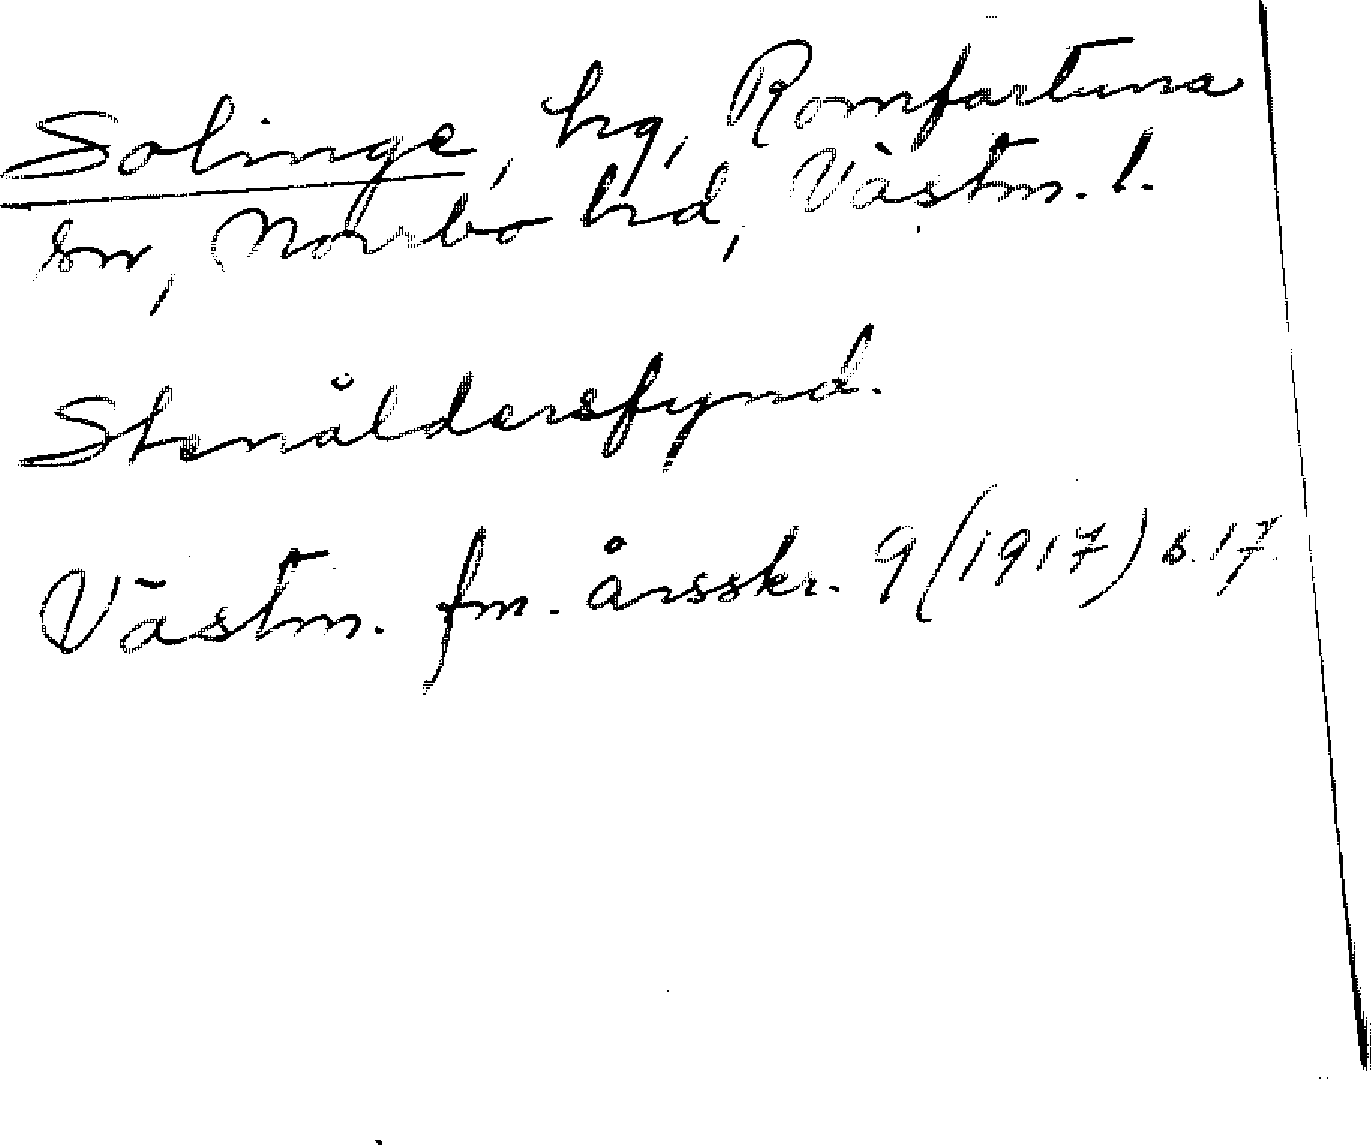 Solinge, hg, Romfartuna
sn, Norrbo hd, Västm. l.
Stenåldersfynd.
Västm. fm. årsskr. 9 (1917) s. 17.